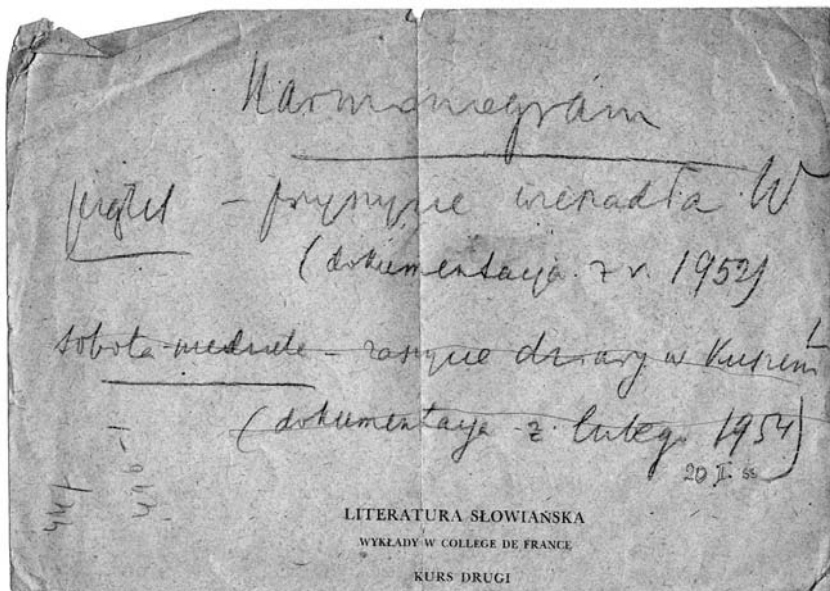 Harmonogram
piątek – przyszycie wieszadła W
(dokumentacja z r. 1952)
sobota-niedziela – zaszycie dziury w Kieszeni L
(dokumentacja z lutego 1954)
20 II. 55
LITERATURA SŁOWIAŃSKA
WYKŁADY W COLLEGE DE FRANCE
KURS DRUGI